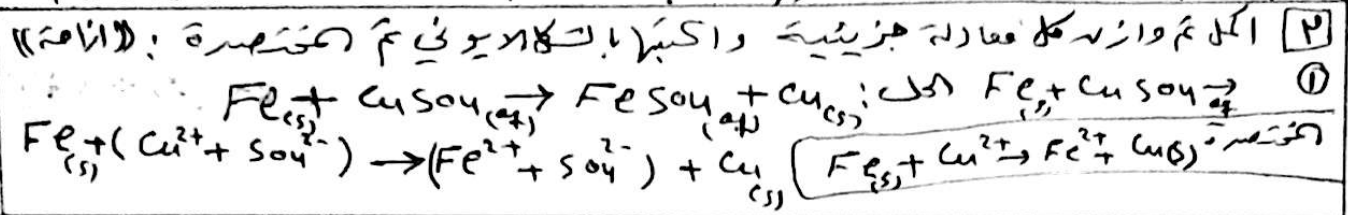 ٢ اكمل ثم وازن كل معادلة جزيئية واكتبها بالشكل الايوني ثم المختصرة : ((ازاحة))
① Fe(s) + CuSO4(aq) → الحل: Fe(s) + CuSO4(aq) → FeSO4(aq) + Cu(s)
Fe(s) + (Cu²⁺ + SO4²⁻) → (Fe²⁺ + SO4²⁻) + Cu(s) المختصرة: Fe(s) + Cu²⁺ → Fe²⁺ + Cu(s)